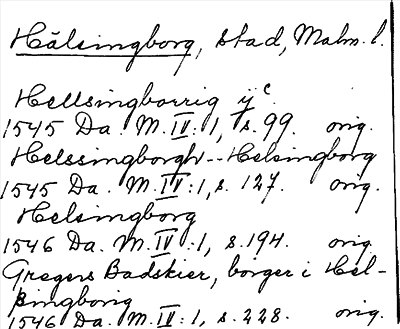 Hälsingborg, stad, Malm. l.
Hellsingborrig ÿc.
1545 Da. M. IV: 1, s. 99. orig.
Helssingborgh -- Helsingborg
1545 Da. M. IV: 1, s. 127. orig.
Helsingborg
1546 Da. M. IV: 1, s. 194. orig.
Gregers Badskier, borger i Hel-
singborig
1546 Da. M. IV: 1, s. 228. orig.